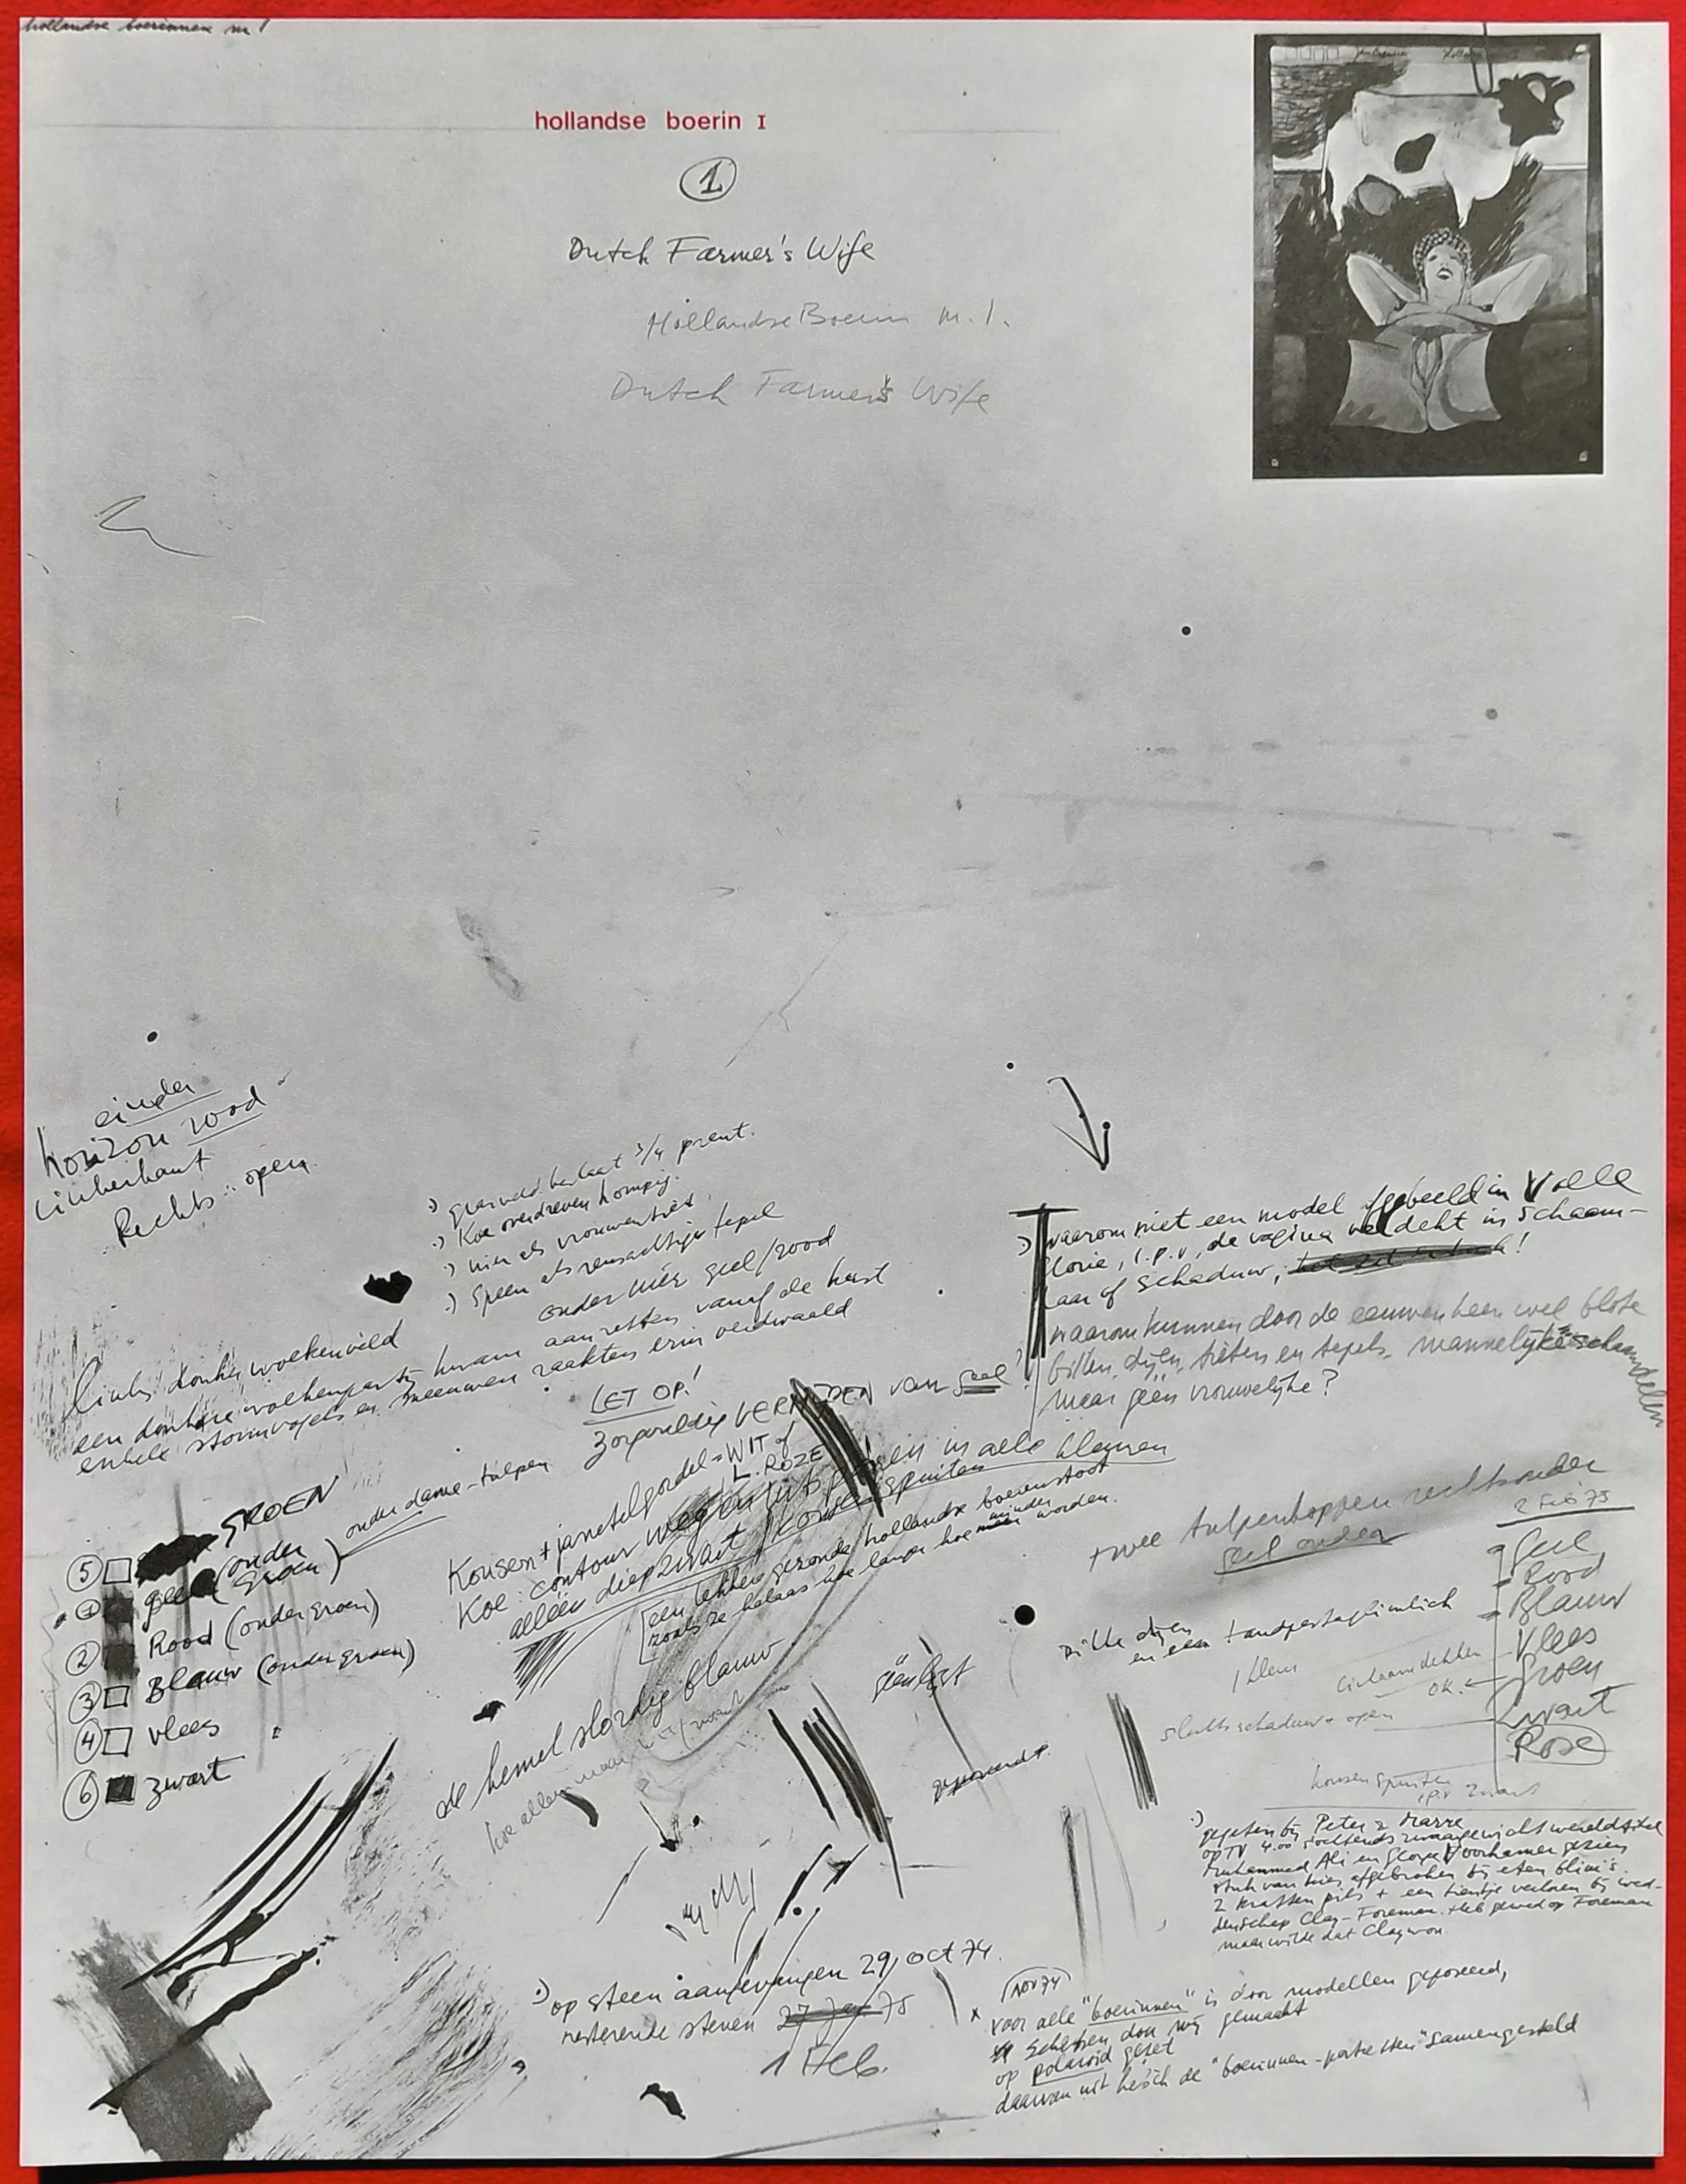 hollandse boerinnen nr 1
hollandse boerin I
1
Dutch Farmer's Wife
Hollandse Boerin nr. 1.
Dutch Farmer's Wife
einder
horizon rood
linkerkant
Rechts: open
:) grasveld beslaat 3/4 prent.
:) Koe overdreven hompig.
:) uier als vrouwentiet
:) Speen als reusachtige tepel
onder uier geel/rood
links donker wolkenveld
een donkere wolkenpartij kwam aanzetten vanaf de kust
enkele stormvogels en meeuwen raakten erin verdwaald
LET OP!
Zorgvuldig VERMIJDEN van geel
Kousen + jarretelgordel = WIT of L. ROZE
Koe: contour weg en uitsparen in alle kleuren
alléén diepzwart / kousen spuiten
[een lekkere gezonde hollandse boerenstoot
zoals ze helaas hoe langer hoe minder worden.
onder dame - tulpen
5 GROEN
1 geel (onder groen)
2 Rood (onder groen)
3 Blauw (onder groen)
4 vlees
6 zwart
de hemel slordig blauw
:) waarom niet een model afgebeeld in volle
glorie, i.p.v. de vagina verdekt in schaam-
haar of schaduw, het zit er toch!
waarom kunnen door de eeuwen heen wel blote
billen, dijen, tieten en tepels, mannelijke schaamdelen
maar géén vrouwelijke?
twee tulpenkoppen rechtsonder
geel onder
2 Feb 75
Geel
Rood
Blauw
Vlees
Groen
Zwart
Rose
dikke dijen
en een tandpastaglimlach
1 kleur
OK.
slechts schaduw + open
kousen spuiten
i.p.v. zwart
geposeerd
:) gegeten bij Peter & Marre
op TV 4.00 's ochtends zwaargewicht wereldtitel
Muhammed Ali en George Voorhamer gezien
stuk van kies afgebroken bij eten blini's.
2 kratten pils + een tientje verloren bij wed-
denschap Clay-Foreman. Heb gewed op Foreman
maar wilde dat Clay won
:) op steen aanvangen 29 oct 74.
resterende stenen 27 Jan 75
1 Feb.
nov 74
x voor alle "boerinnen" is door modellen geposeerd,
schetsen door mij gemaakt
op polaroid gezet
daarvan uit heb ik de "boerinnen-portretten" samengesteld